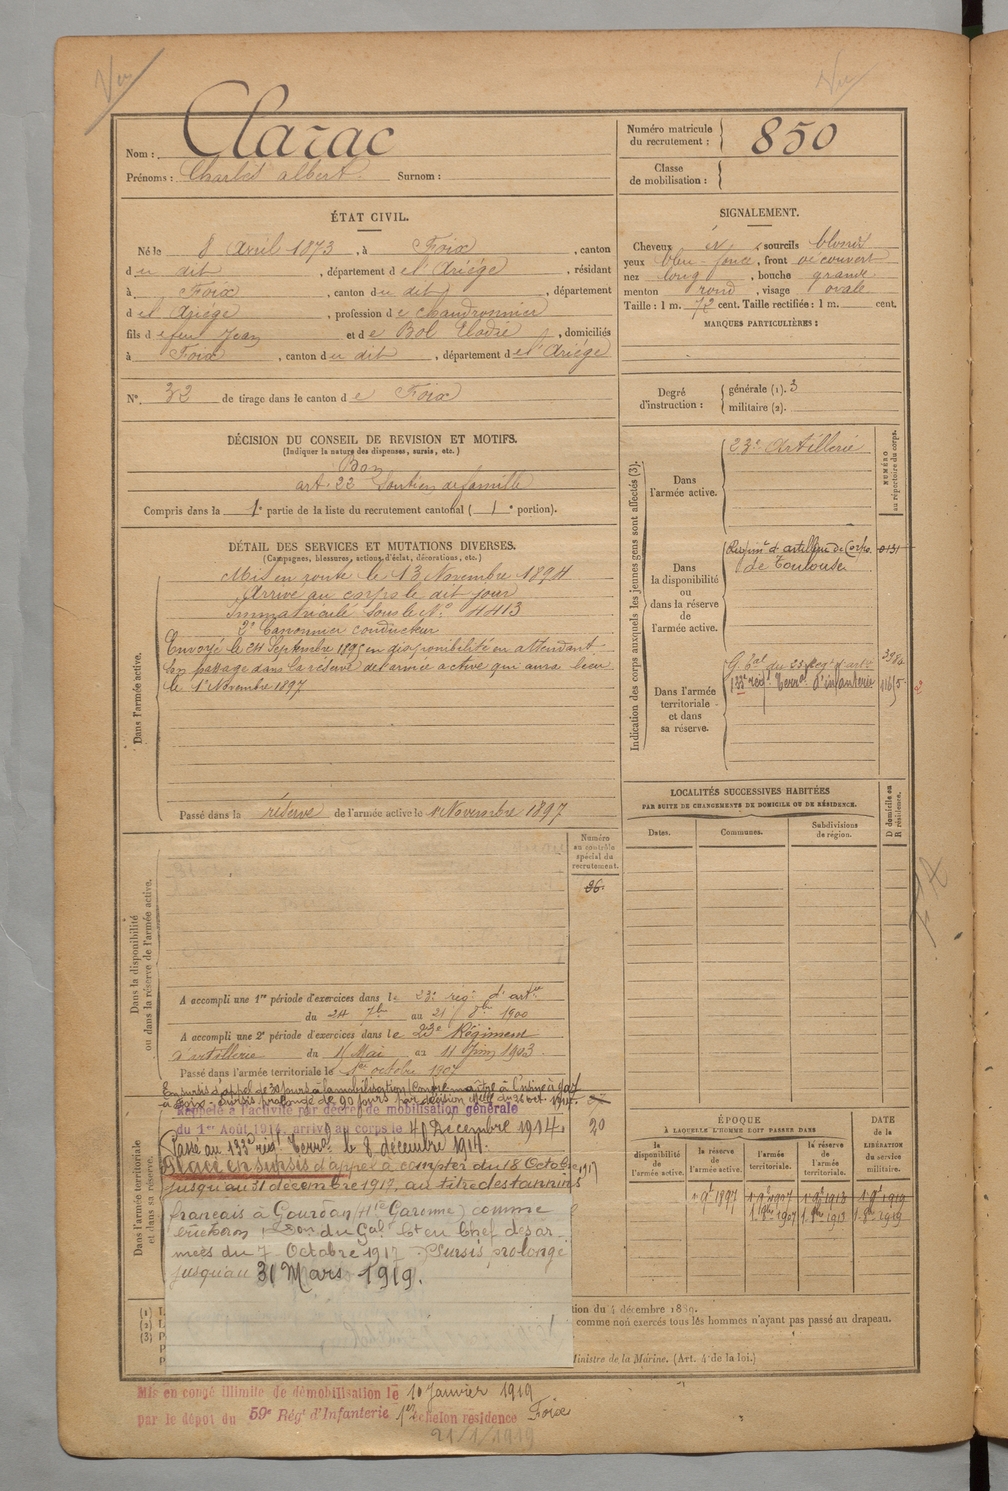 Vu
Vu
Nom : Clarac
Prénoms : Charles albert Surnom :
Numéro matricule du recrutement : 850
Classe de mobilisation :
ÉTAT CIVIL.
Né le 8 Avril 1873, à Foix, canton
du dit, département de l'Ariège, résidant
à Foix, canton du dit, département
de l'Ariège, profession de chaudronnier
fils de feu Jean et de Bol Elodie, domiciliés
à Foix, canton du dit, département de l'Ariège
N° 32 de tirage dans le canton de Foix
SIGNALEMENT.
Cheveux sourcils blonds
yeux bleu-foncé, front découvert
nez long, bouche grande
menton rond, visage ovale
Taille : 1 m. 72 cent. Taille rectifiée : 1 m. cent.
MARQUES PARTICULIÈRES :
Degré d'instruction : générale (1). 3
militaire (2).
DÉCISION DU CONSEIL DE REVISION ET MOTIFS.
(Indiquer la nature des dispenses, sursis, etc.)
Bon
art. 22 Soutien de famille
Compris dans la 1e partie de la liste du recrutement cantonal (1e portion).
DÉTAIL DES SERVICES ET MUTATIONS DIVERSES.
(Campagnes, blessures, actions d'éclat, décorations, etc.)
Dans l'armée active.
Mis en route le 13 Novembre 1894
Arrivé au corps le dit jour
Immatriculé sous le N° 4413
2e Canonnier conducteur
Envoyé le 24 Septembre 1895 en disponibilité en attendant
son passage dans la réserve de l'armée active qui aura lieu
le 1er Novembre 1897
Passé dans la réserve de l'armée active le 1er Novembre 1897
Indication des corps auxquels les jeunes gens sont affectés (3).
NUMÉRO au répertoire du corps.
Dans l'armée active.
23e Artillerie
Dans la disponibilité ou dans la réserve de l'armée active.
Régim't d'artillerie de Corps 0131
de Toulouse
Dans l'armée territoriale et dans sa réserve.
G. Tal du 23 Rég. d'art
133e rég. Terral d'infanterie
LOCALITÉS SUCCESSIVES HABITÉES
PAR SUITE DE CHANGEMENTS DE DOMICILE OU DE RÉSIDENCE.
Dates. Communes. Subdivisions de région. D domicile ou R résidence.
Numéro au contrôle spécial du recrutement.
36
Dans la disponibilité ou dans la réserve de l'armée active.
A accompli une 1re période d'exercices dans le 23e rég. d'artie
du 24 7bre au 21 8bre 1900
A accompli une 2e période d'exercices dans le 23e Régiment
d'artillerie du 15 Mai au 11 Juin 1903
Passé dans l'armée territoriale le 1er octobre 1907
En sursis d'appel de 30 jours à la mobilisation (Contremaître à l'usine à gaz
à Foix - Sursis prolongé de 90 jours par décision Melle du 31 oct. 1914.
Dans l'armée territoriale et dans sa réserve.
Rappelé à l'activité par décret de mobilisation générale
du 1er Août 1914, arrivé au corps le 4 Décembre 1914. 20
Passé au 133e rég. Terral le 8 décembre 1914.
Placé en sursis d'appel à compter du 18 Octobre 1917
jusqu'au 31 décembre 1917, au titre des tannins
français à Gourdan (Hte Garonne) comme
du Gal Ct en Chef des ar-
mées du 7 Octobre 1917 Sursis prolongé
jusqu'au 31 Mars 1919.
ÉPOQUE
À LAQUELLE L'HOMME DOIT PASSER DANS
la disponibilité de l'armée active. la réserve de l'armée active. l'armée territoriale. la réserve de l'armée territoriale. DATE de la LIBÉRATION du service militaire.
1 9bre 1897 1 9bre 1907 1 9bre 1913 1 9bre 1919
1. 8bre 1907 1. 8bre 1913 1. 8bre 1919
(1) L
(2) L
(3) P
tion du 4 décembre 1889.
comme non exercés tous les hommes n'ayant pas passé au drapeau.
Ministre de la Marine. (Art. 4 de la loi.)
Mis en congé illimité de démobilisation le 10 Janvier 1919
par le dépôt du 59e Régt d'Infanterie 1er échelon résidence Foix
21/1/1919